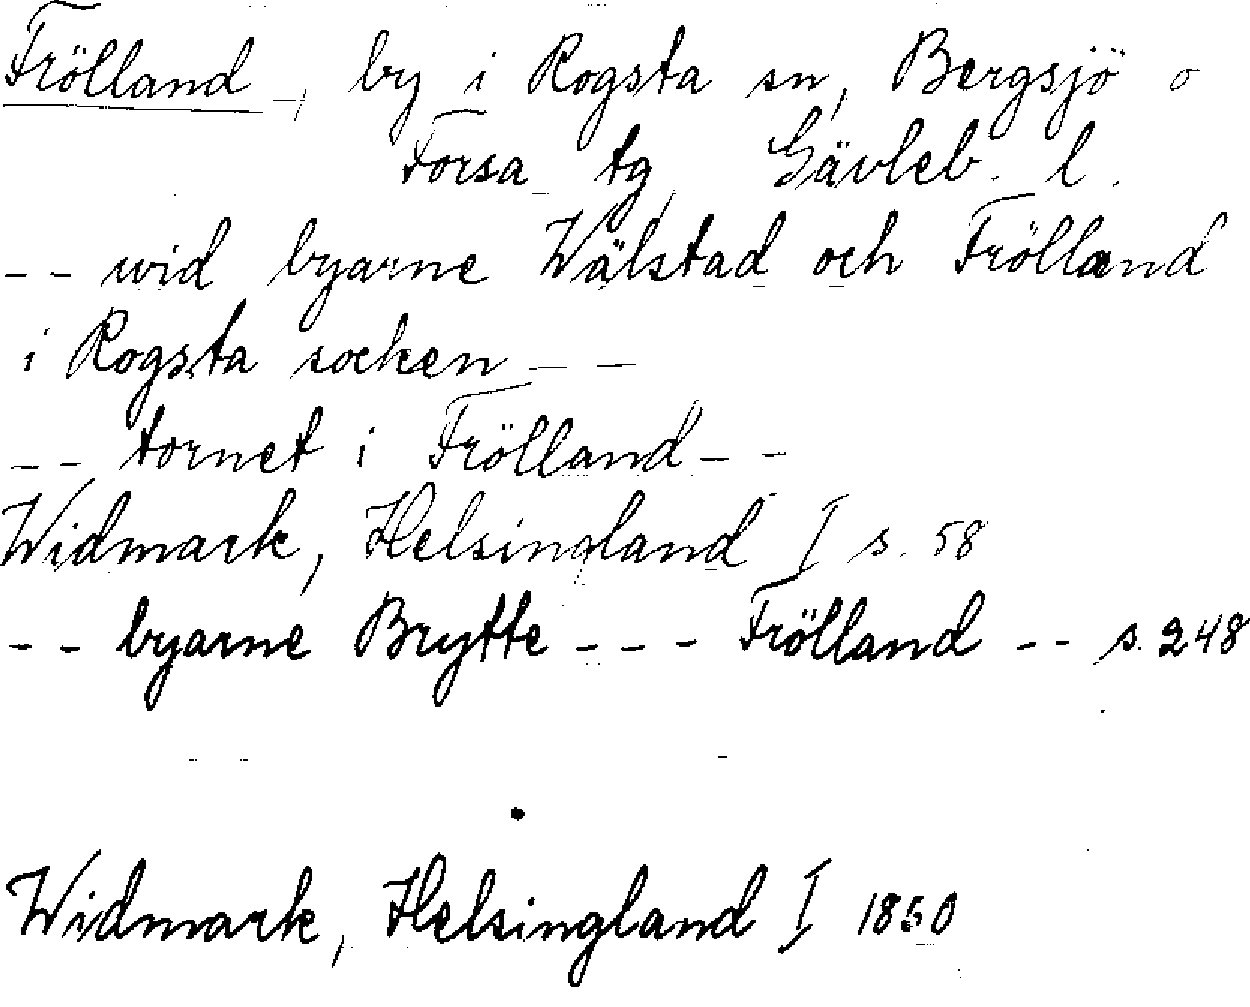 Frölland, by i Rogsta sn, Bergsjö o
Forsa tg, Gävleb. l.
-- wid byarne Wälstad och Frölland
i Rogsta socken --
-- tornet i Frölland --
Widmark, Helsingland I s. 58
-- byarne Brytte --- Frölland -- s. 248
Widmark, Helsingland I 1860